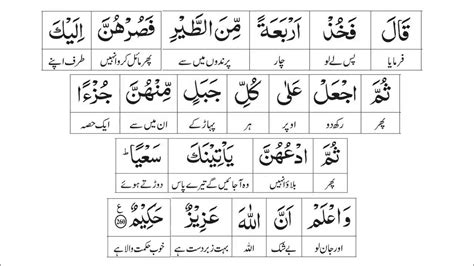 قَالَ فَخُذْ اَرْبَعَةً مِّنَ الطَّيْرِ فَصُرْهُنَّ اِلَيْكَ
فرمایا پس لے لو چار پرندوں میں سے پھر مائل کرو انہیں طرف اپنے
ثُمَّ اجْعَلْ عَلٰى كُلِّ جَبَلٍ مِّنْهُنَّ جُزْءًا
پھر رکھ دو اوپر ہر پہاڑ کے ان میں سے ایک حصہ
ثُمَّ ادْعُهُنَّ يَاْتِيْنَكَ سَعْيًا ؕ
پھر بلاؤ انہیں وہ آجائیں گے تیرے پاس دوڑتے ہوئے
وَاعْلَمْ اَنَّ اللّٰهَ عَزِيْزٌ حَكِيْمٌ ع 260
اور جان لو بے شک اللہ بہت زبردست ہے خوب حکمت والا ہے